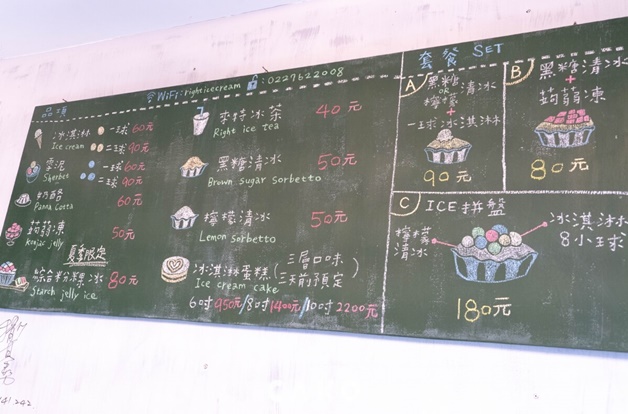 品項
WiFi:righticecream :0227622008
冰淇淋 一球60元
Ice cream 二球90元
雪泥 一球60元
Sherbet 二球90元
奶酪 60元
Panna Cotta
蒟蒻凍 50元
Konjac jelly
夏季限定
綜合粉粿冰 80元
Starch jelly ice
麥特冰茶 40元
Right ice tea
黑糖清冰 50元
Brown sugar sorbetto
檸檬清冰 50元
Lemon sorbetto
冰淇淋蛋糕(三層口味 三天前預定)
Ice cream cake
6吋950元/8吋1400元/10吋2200元
套餐 SET
A 黑糖
OR 清冰
檸檬
+
一球冰淇淋
90元
B 黑糖清冰
+
蒟蒻凍
80元
C ICE拼盤
檸檬
清冰
冰淇淋
8小球
180元